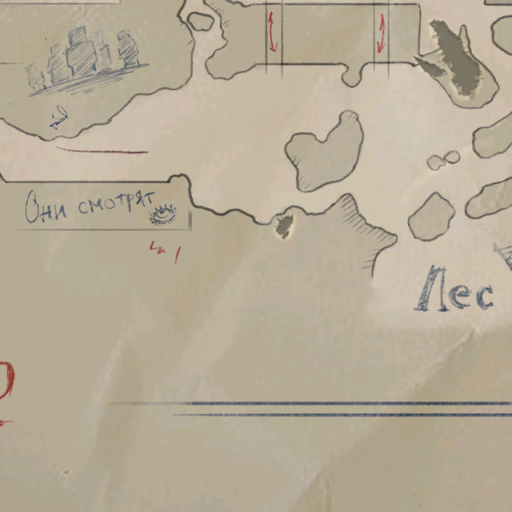 Они смотрят
Лес